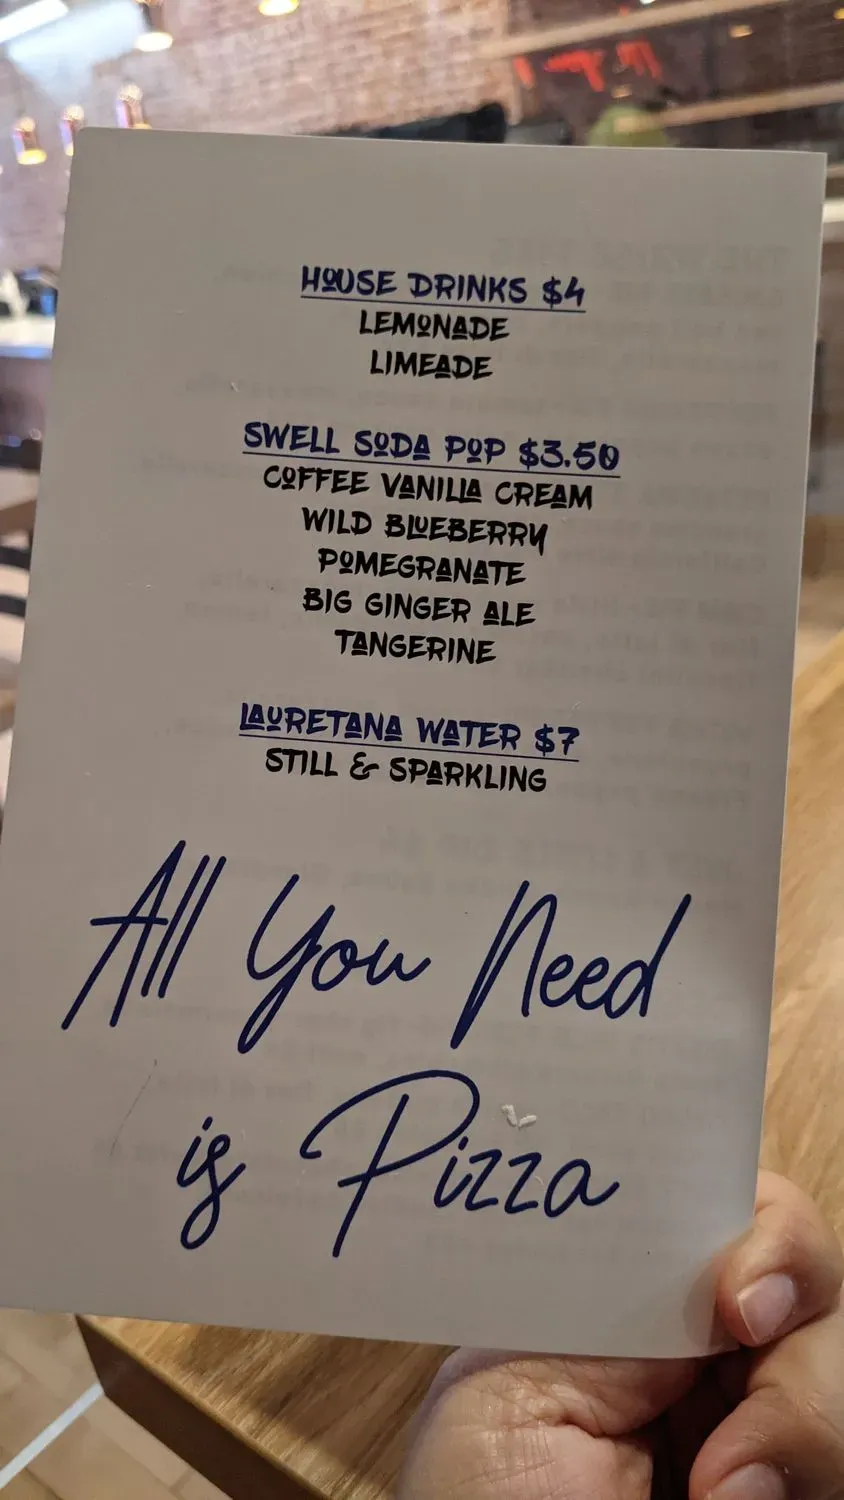 HOUSE DRINKS $4
LEMONADE
LIMEADE
SWELL SODA POP $3.50
COFFEE VANILLA CREAM
WILD BLUEBERRY
POMEGRANATE
BIG GINGER ALE
TANGERINE
LAURETANA WATER $7
STILL & SPARKLING
All You Need
is Pizza